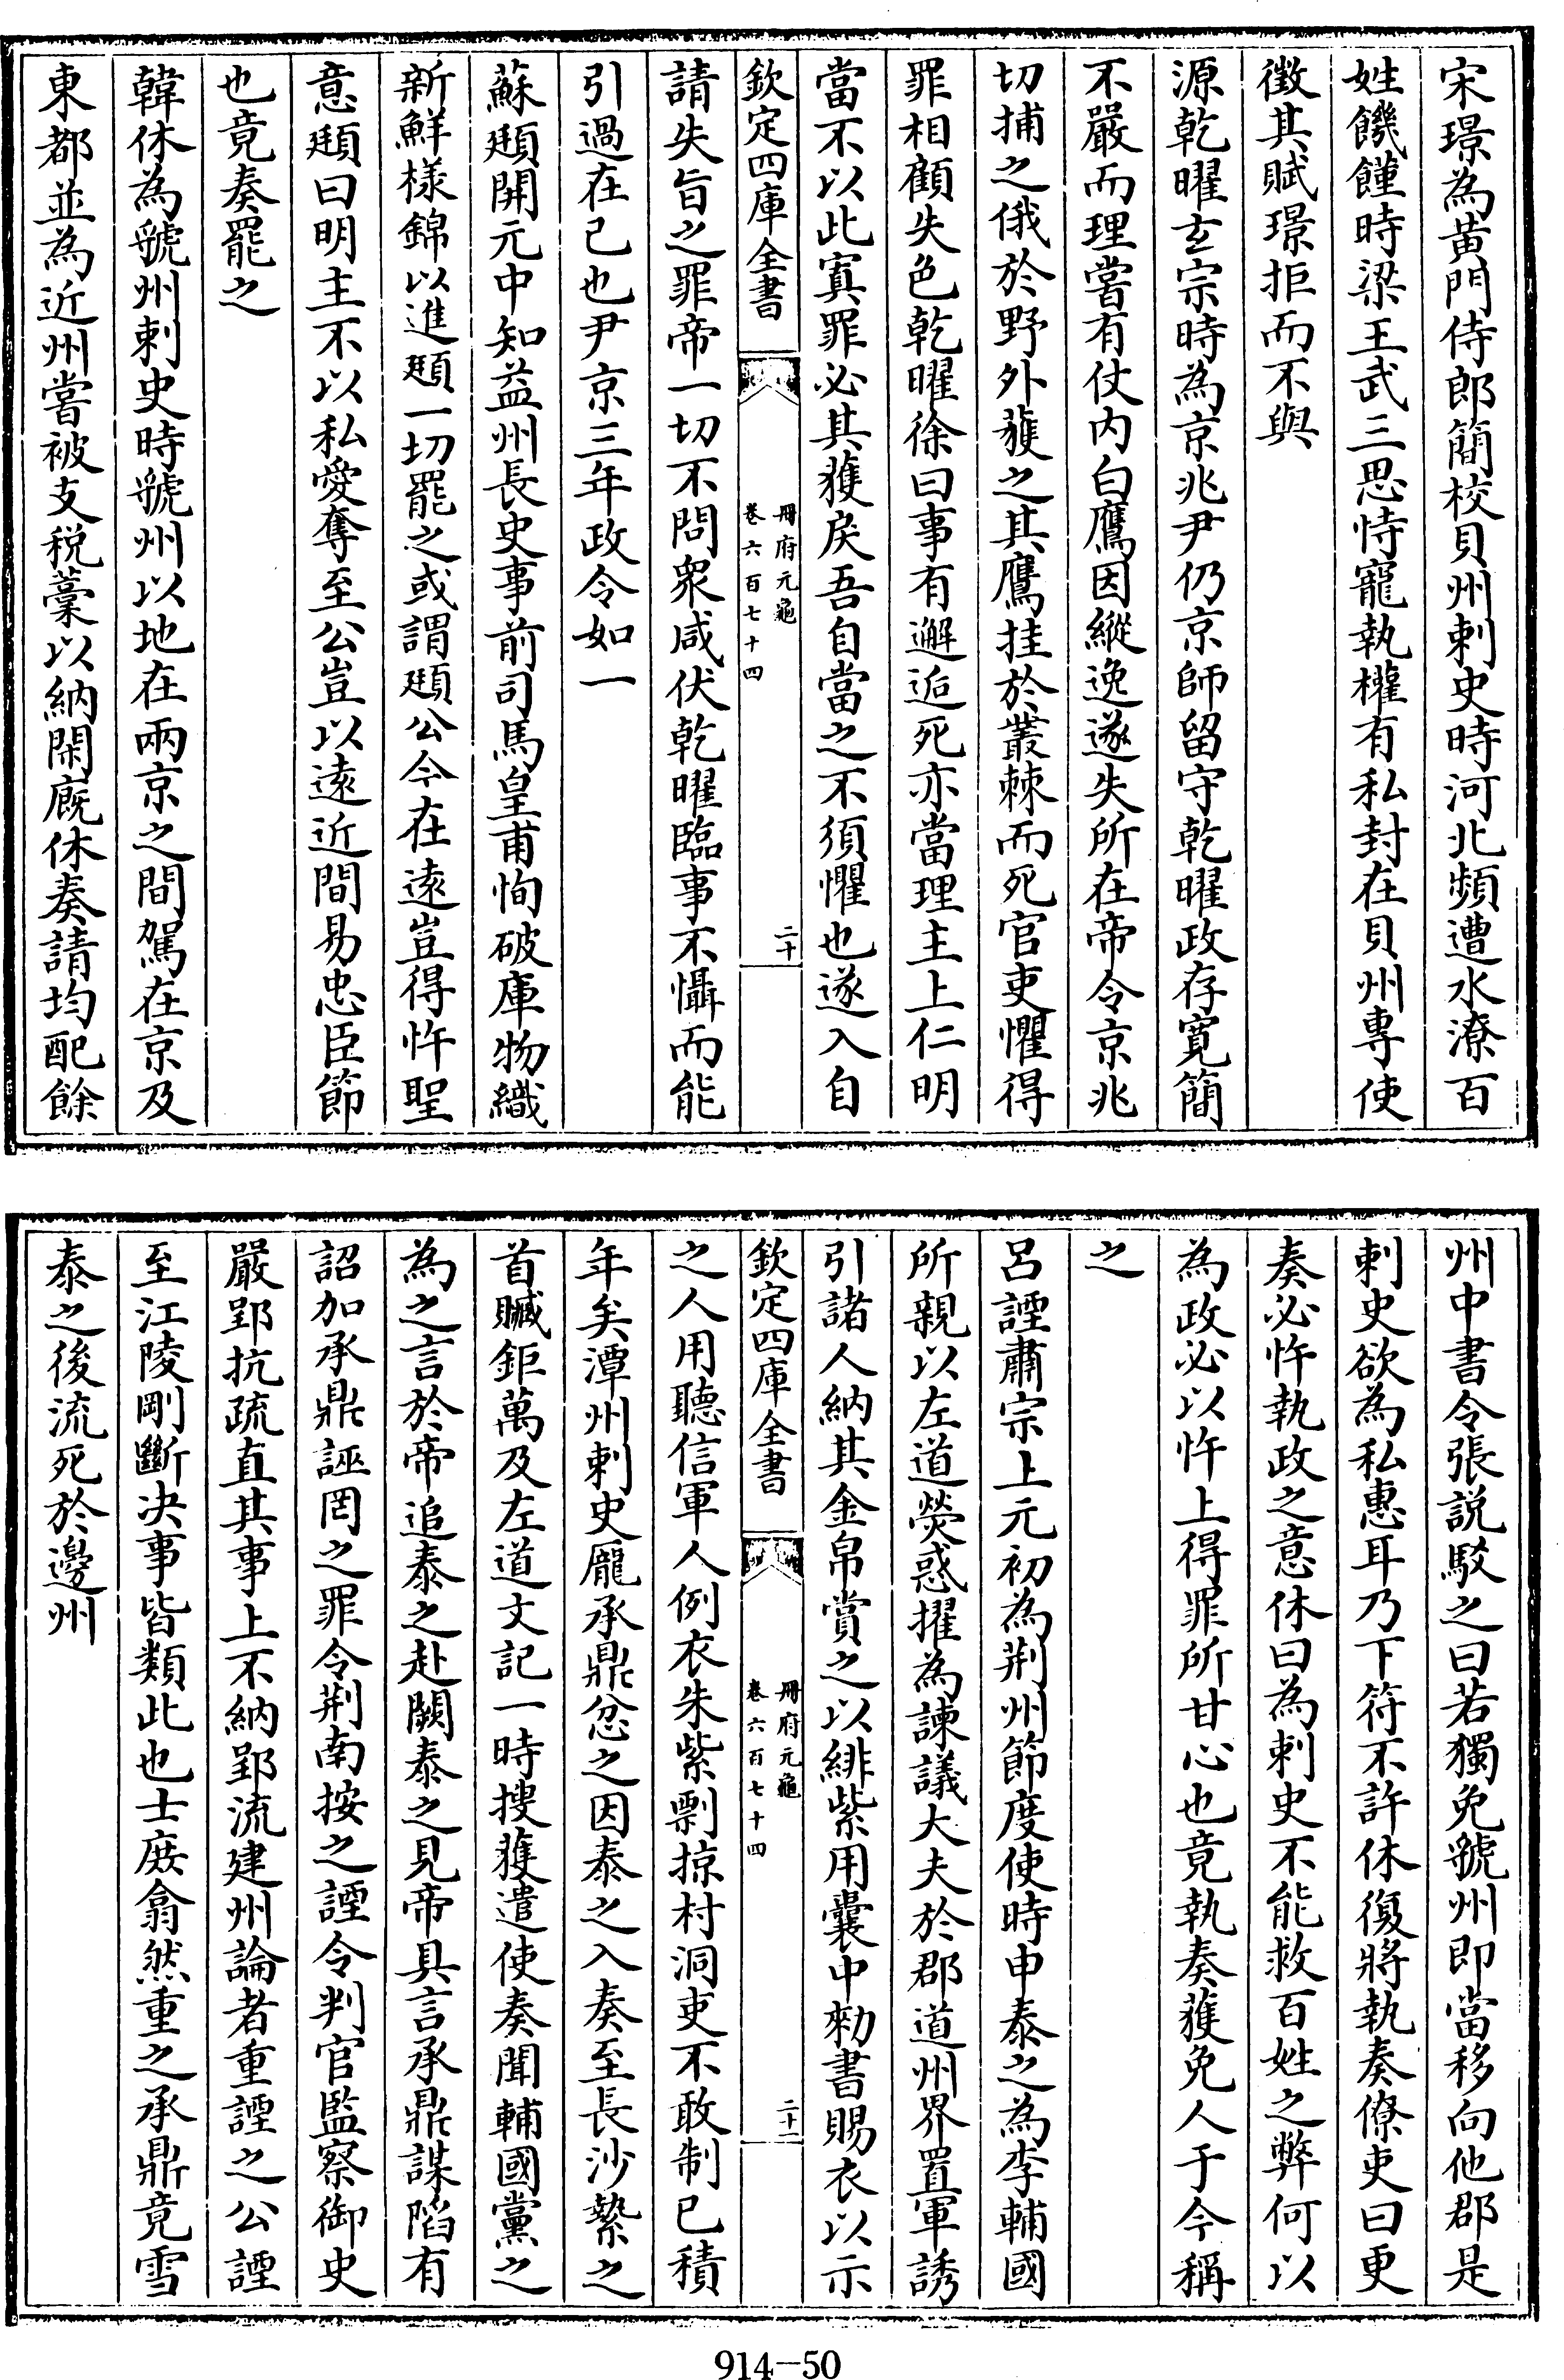 宋璟為黃門侍郎簡校貝州刺史時河北頻遭水潦百
姓饑饉時梁王武三思恃寵執權有私封在貝州專使
徵其賦璟拒而不與
源乾曜玄宗時為京兆尹仍京師留守乾曜政存寬簡
不嚴而理嘗有仗内白鷹因縱逸遂失所在帝令京兆
切捕之俄於野外獲之其鷹挂於叢棘而死官吏懼得
罪相顧失色乾曜徐曰事有邂逅死亦當理主上仁明
當不以此寘罪必其獲戾吾自當之不須懼也遂入自
欽定四庫全書
冊府元龜
卷六百七十四
二十
請失旨之罪帝一切不問衆咸伏乾曜臨事不懾而能
引過在己也尹京三年政令如一
蘇頲開元中知益州長史事前司馬皇甫恂破庫物織
新鮮樣錦以進頲一切罷之或謂頲公今在遠豈得忤聖
意頲曰明主不以私愛奪至公豈以遠近間易忠臣節
也竟奏罷之
韓休為虢州刺史時虢州以地在兩京之間駕在京及
東都並為近州嘗被支税藁以納閑廐休奏請均配餘
州中書令張説駁之曰若獨免虢州即當移向他郡是
刺史欲為私惠耳乃下符不許休復將執奏僚吏曰更
奏必忤執政之意休曰為刺史不能救百姓之弊何以
為政必以忤上得罪所甘心也竟執奏獲免人于今稱
之
呂諲肅宗上元初為荆州節度使時申泰之為李輔國
所親以左道熒惑擢為諫議大夫於郡道州界置軍誘
引諸人納其金帛賞之以緋紫用囊中勑書賜衣以示
欽定四庫全書
冊府元龜
卷六百七十四
二十一
之人用聽信軍人例衣朱紫剽掠村洞吏不敢制已積
年矣潭州刺史龎承鼎忿之因泰之入奏至長沙縶之
首贓鉅萬及左道文記一時搜獲遣使奏聞輔國黨之
為之言於帝追泰之赴闕泰之見帝具言承鼎謀陷有
詔加承鼎誣罔之罪令荆南按之諲令判官監察御史
嚴郢抗疏直其事上不納郢流建州論者重諲之公諲
至江陵剛斷决事皆類此也士庶翕然重之承鼎竟雪
泰之後流死於邊州
914-50